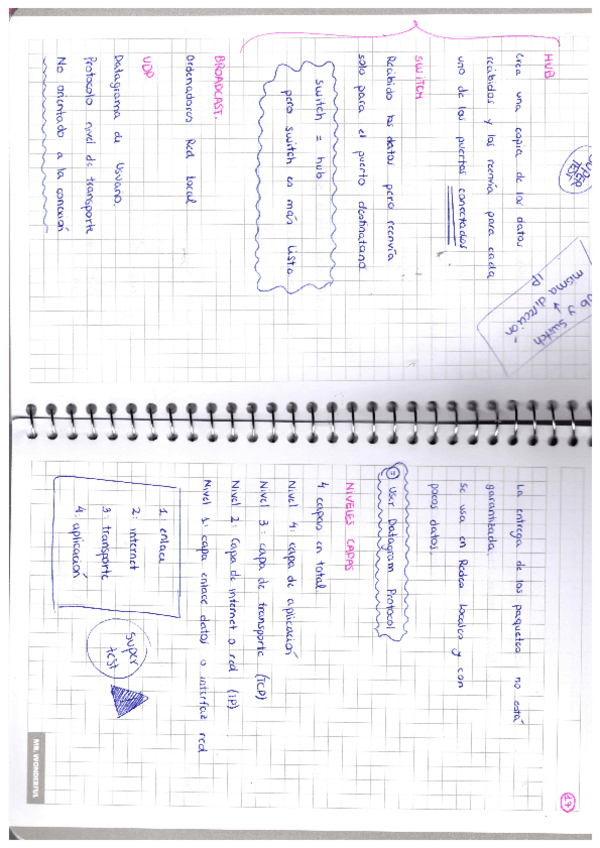 HUB
Crea una copia de los datos
recibidos y los reenvía para cada
uno de los puertos conectados
SUPER
TEST
SWITCH
Recibido los datos pero reenvía
solo para el puerto destinatario
switch = hub
pero switch es más listo
y switch
misma dirección
IP
BROADCAST.
Ordenadores Red local
UDP
Datagrama de Usuario.
Protocolo nivel de transporte
No orientado a la conexión
17
La entrega de los paquetes no está
garantizada
Se usa en Redes locales y con
pocos datos.
= User Datagram Protocol
NIVELES CAPAS
4 capas en total
Nivel 4: capa de aplicación
Nivel 3: capa de transporte (TCP)
Nivel 2: Capa de internet o red (IP)
Nivel 1: capa enlace datos o interfaz red
1. enlace
2. internet
3. transporte
4. aplicación
super
test
MR. WONDERFUL